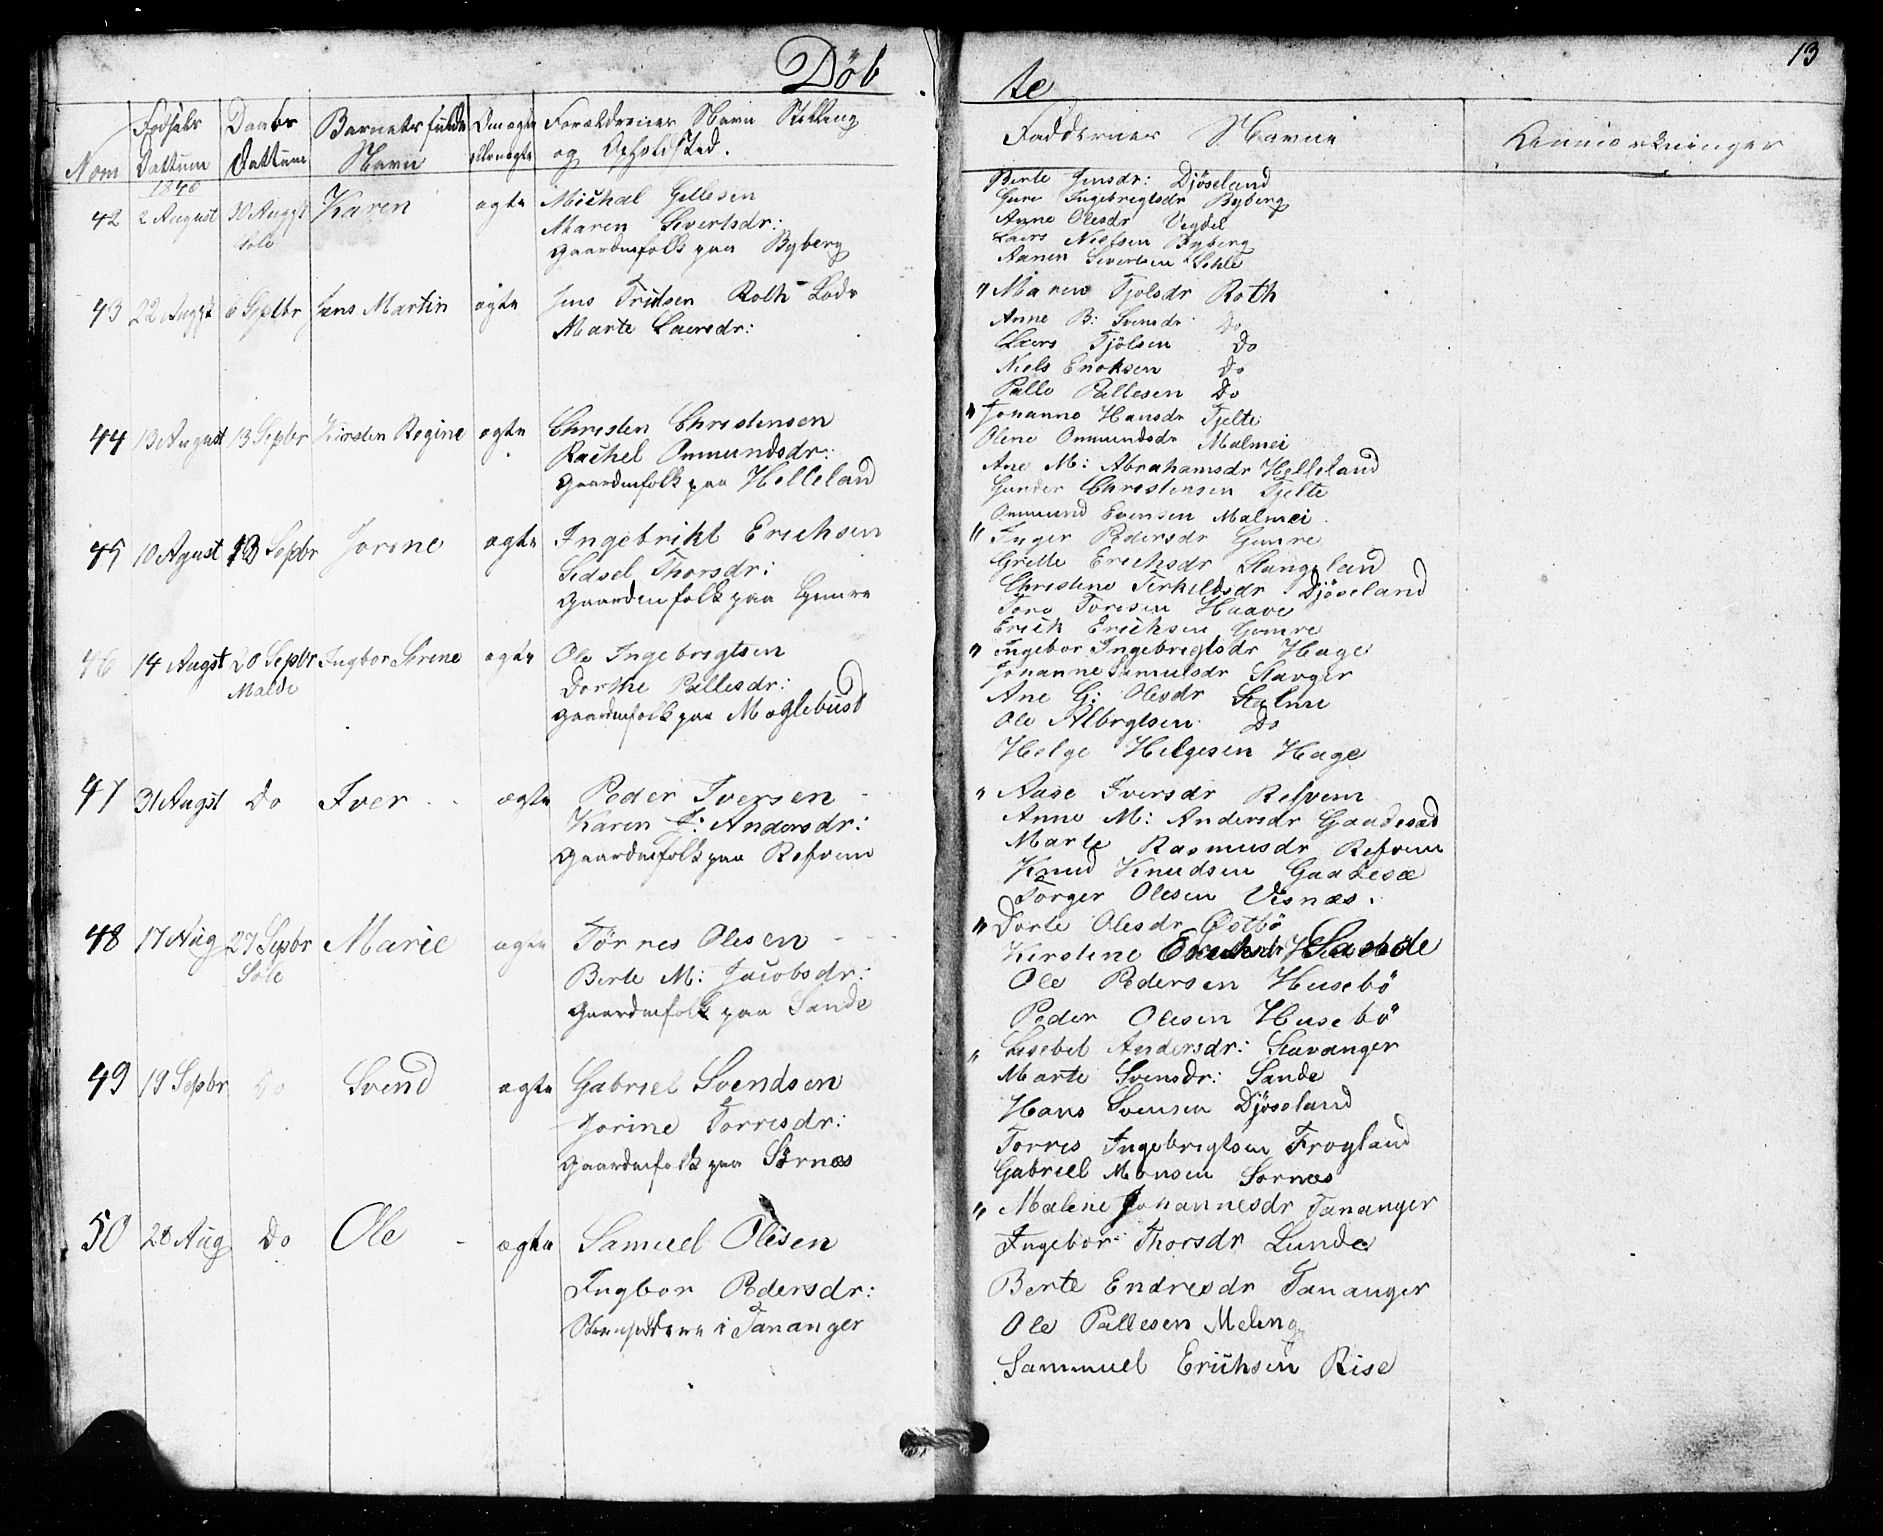 Døb
te
13
Nom
Fødsels Dattum
Daabs Dattum
Barnets fulde Navn
Om ægte
Forældrenes Navn Stilling
og Opholdsted.
Faddernes Navne
Anmærkninger
1840
42 2 August 30 Augst Sole Karen ægte
Michal Gellesen
Maren Sivertsdr:
Gaardmfolk paa Byberg
Berte Jensdr: Djöseland
Guri Ingebrigtsdr Byberg
Anne Olesdr Vigdel
Laers Nielsen Byberg
Aanen Sivertsen Sehle
43 22 Augst 6 Septbr Jens Martin ægte
Jens Roth
Marte Laersdr:
" Maren Tjolsdr Roth
Anne B: Svensdr Do
Laers Tjölsen Do
Niels Enoksen Do
Palle Pallesen Do
44 13 August 13 Sepbr Kirsten Regine ægte
Christen Christensen
Rachel Ommundsdr:
Gaardmfolk paa Helleland
" Johanne Hansdr Tjelte
Olene Ommundsdr Malmei
Ane M: Abrahamsdr Helleland
Gunder Christensen Tjelte
Ommund Evensen Malmei.
45 10 Agust 13 Sepbr Jorine ægte
Ingebrikt Erichsen
Sidsel Thorsdr:
Gaardmfolk paa Gimre
" Inger Pedersdr Gimre
Gritte Erichsdr Stangeland
Christine Terkildsdr Djöseland
Tore Toresen Haave
Erick Erichsen Gomre
46 14 Augst 20 Sepbr Malde Ingbor Serine ægte
Ole Ingebrigtsen
Dorthe Pallesdr:
Gaardmfolk paa Møglebust
" Ingebor Ingebrigtsdr Hage
Johanne Samuelsdr Stavger
Ane G: Olesdr
Ole Albregtsen Do
Helge Helgesen Hage
47 31 Augst Do Iver ægte
Peder Iversen
Karen J: Andersdr:
Gaardmfolk paa Refvem
" Aase Iversdr Refvem
Anne M: Andersdr
Marte Rasmusdr Refvem
Knud Knudsen
Törger Olesen Visnæs.
48 17 Aug 27 Sepbr Sole Marie ægte
Törres Olesen
Berte M: Jacobsdr:
Gaardmfolk paa Sande
" Dorte Olesdr Östbö
Kirstine
Ole Pedersen Husebö
Peder Olesen Husebö
49 19 Sepbr Do Svend ægte
Gabriel Svendsen
Jorine Torresdr:
Gaardmfolk paa Sörnæs
" Lisebet Andersdr: Stavanger
Marte Svensdr: Sande
Hans Svensen Djöseland
Torres Ingebrigtsen Frogland
Gabriel Monsen Sornæs
50 28 Aug Do Ole ægte
Samuel Olesen
Ingbor Pedersdr:
i Tananger
" Malene Johannesdr Tananger
Ingebor Thorsdr Lunde
Berte Endresdr Tananger
Ole Pallesen Meling
Sammuel Erichsen Risе